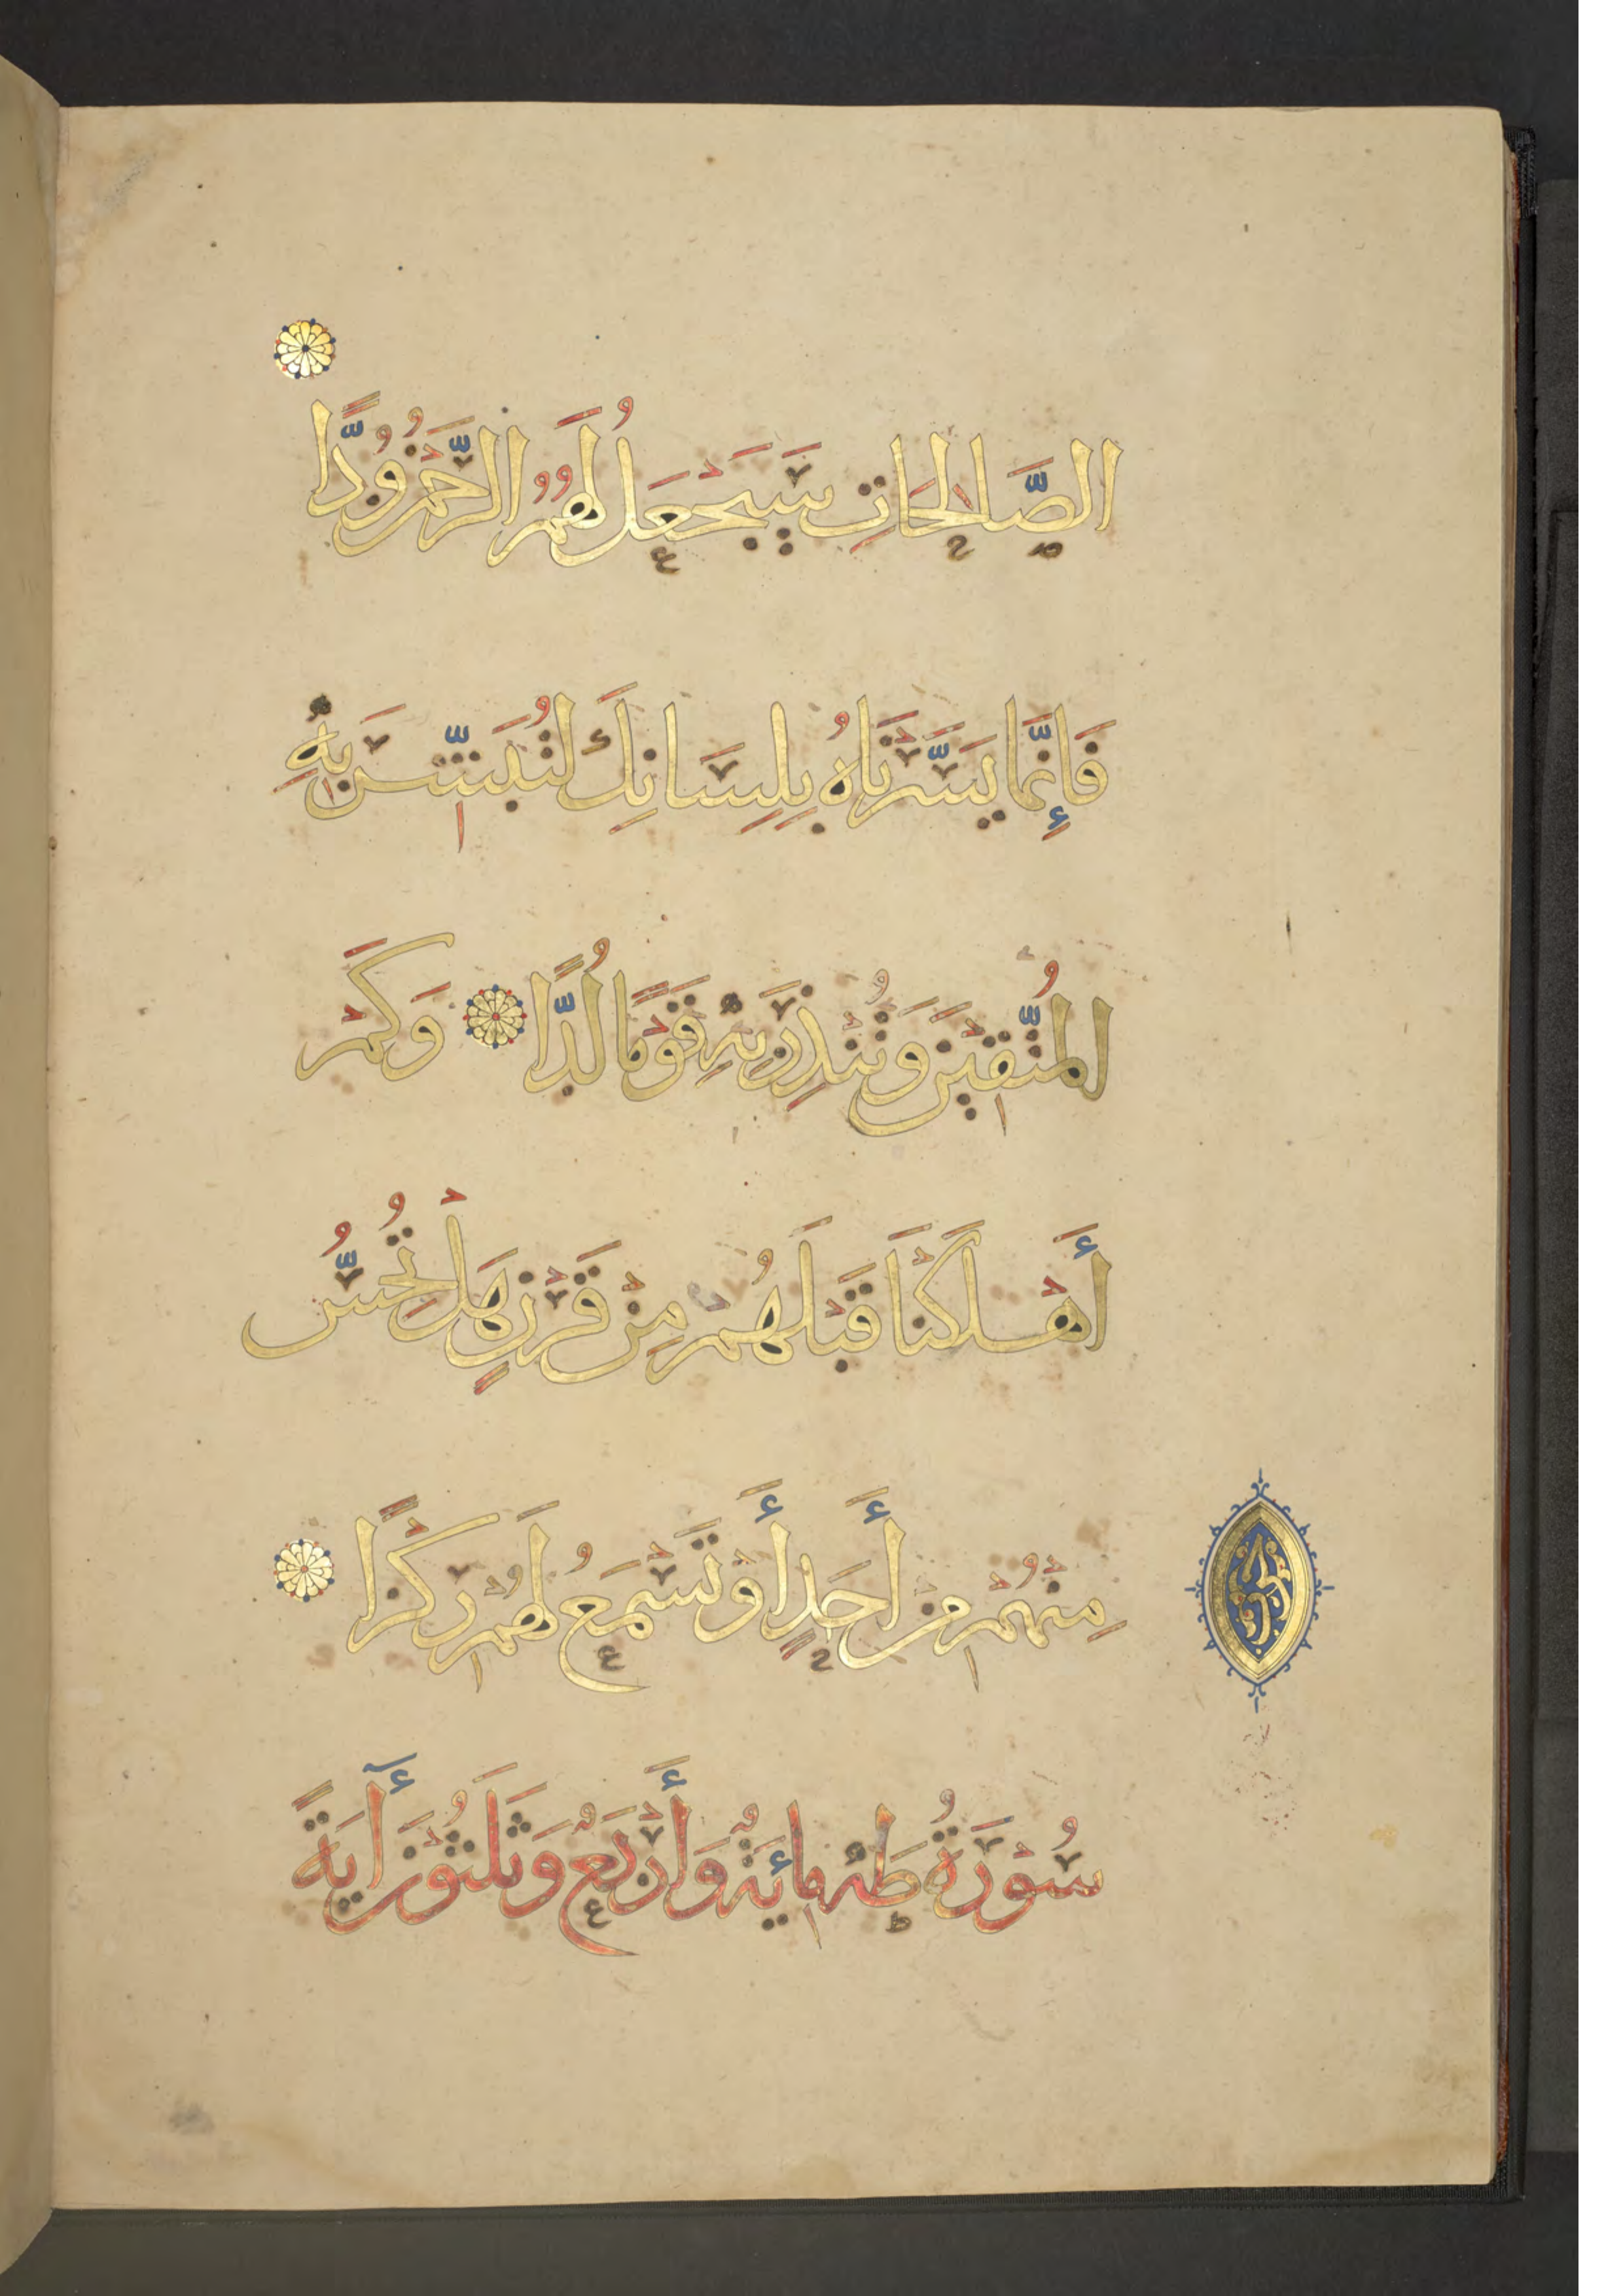 الصَّالِحَاتِ سَيَجْعَلُ لَهُمُ الرَّحْمٰنُ وُدًّا
فَإِنَّمَا يَسَّرْنَاهُ بِلِسَانِكَ لِتُبَشِّرَ بِهِ
الْمُتَّقِينَ وَتُنْذِرَ بِهِ قَوْمًا لُدًّا وَكَمْ
أَهْلَكْنَا قَبْلَهُمْ مِنْ قَرْنٍ هَلْ تُحِسُّ
مِنْهُمْ مِنْ أَحَدٍ أَوْ تَسْمَعُ لَهُمْ رِكْزًا
سُورَةُ طه مِائَةٌ وَأَرْبَعٌ وَثَلٰثُونَ آيَةً